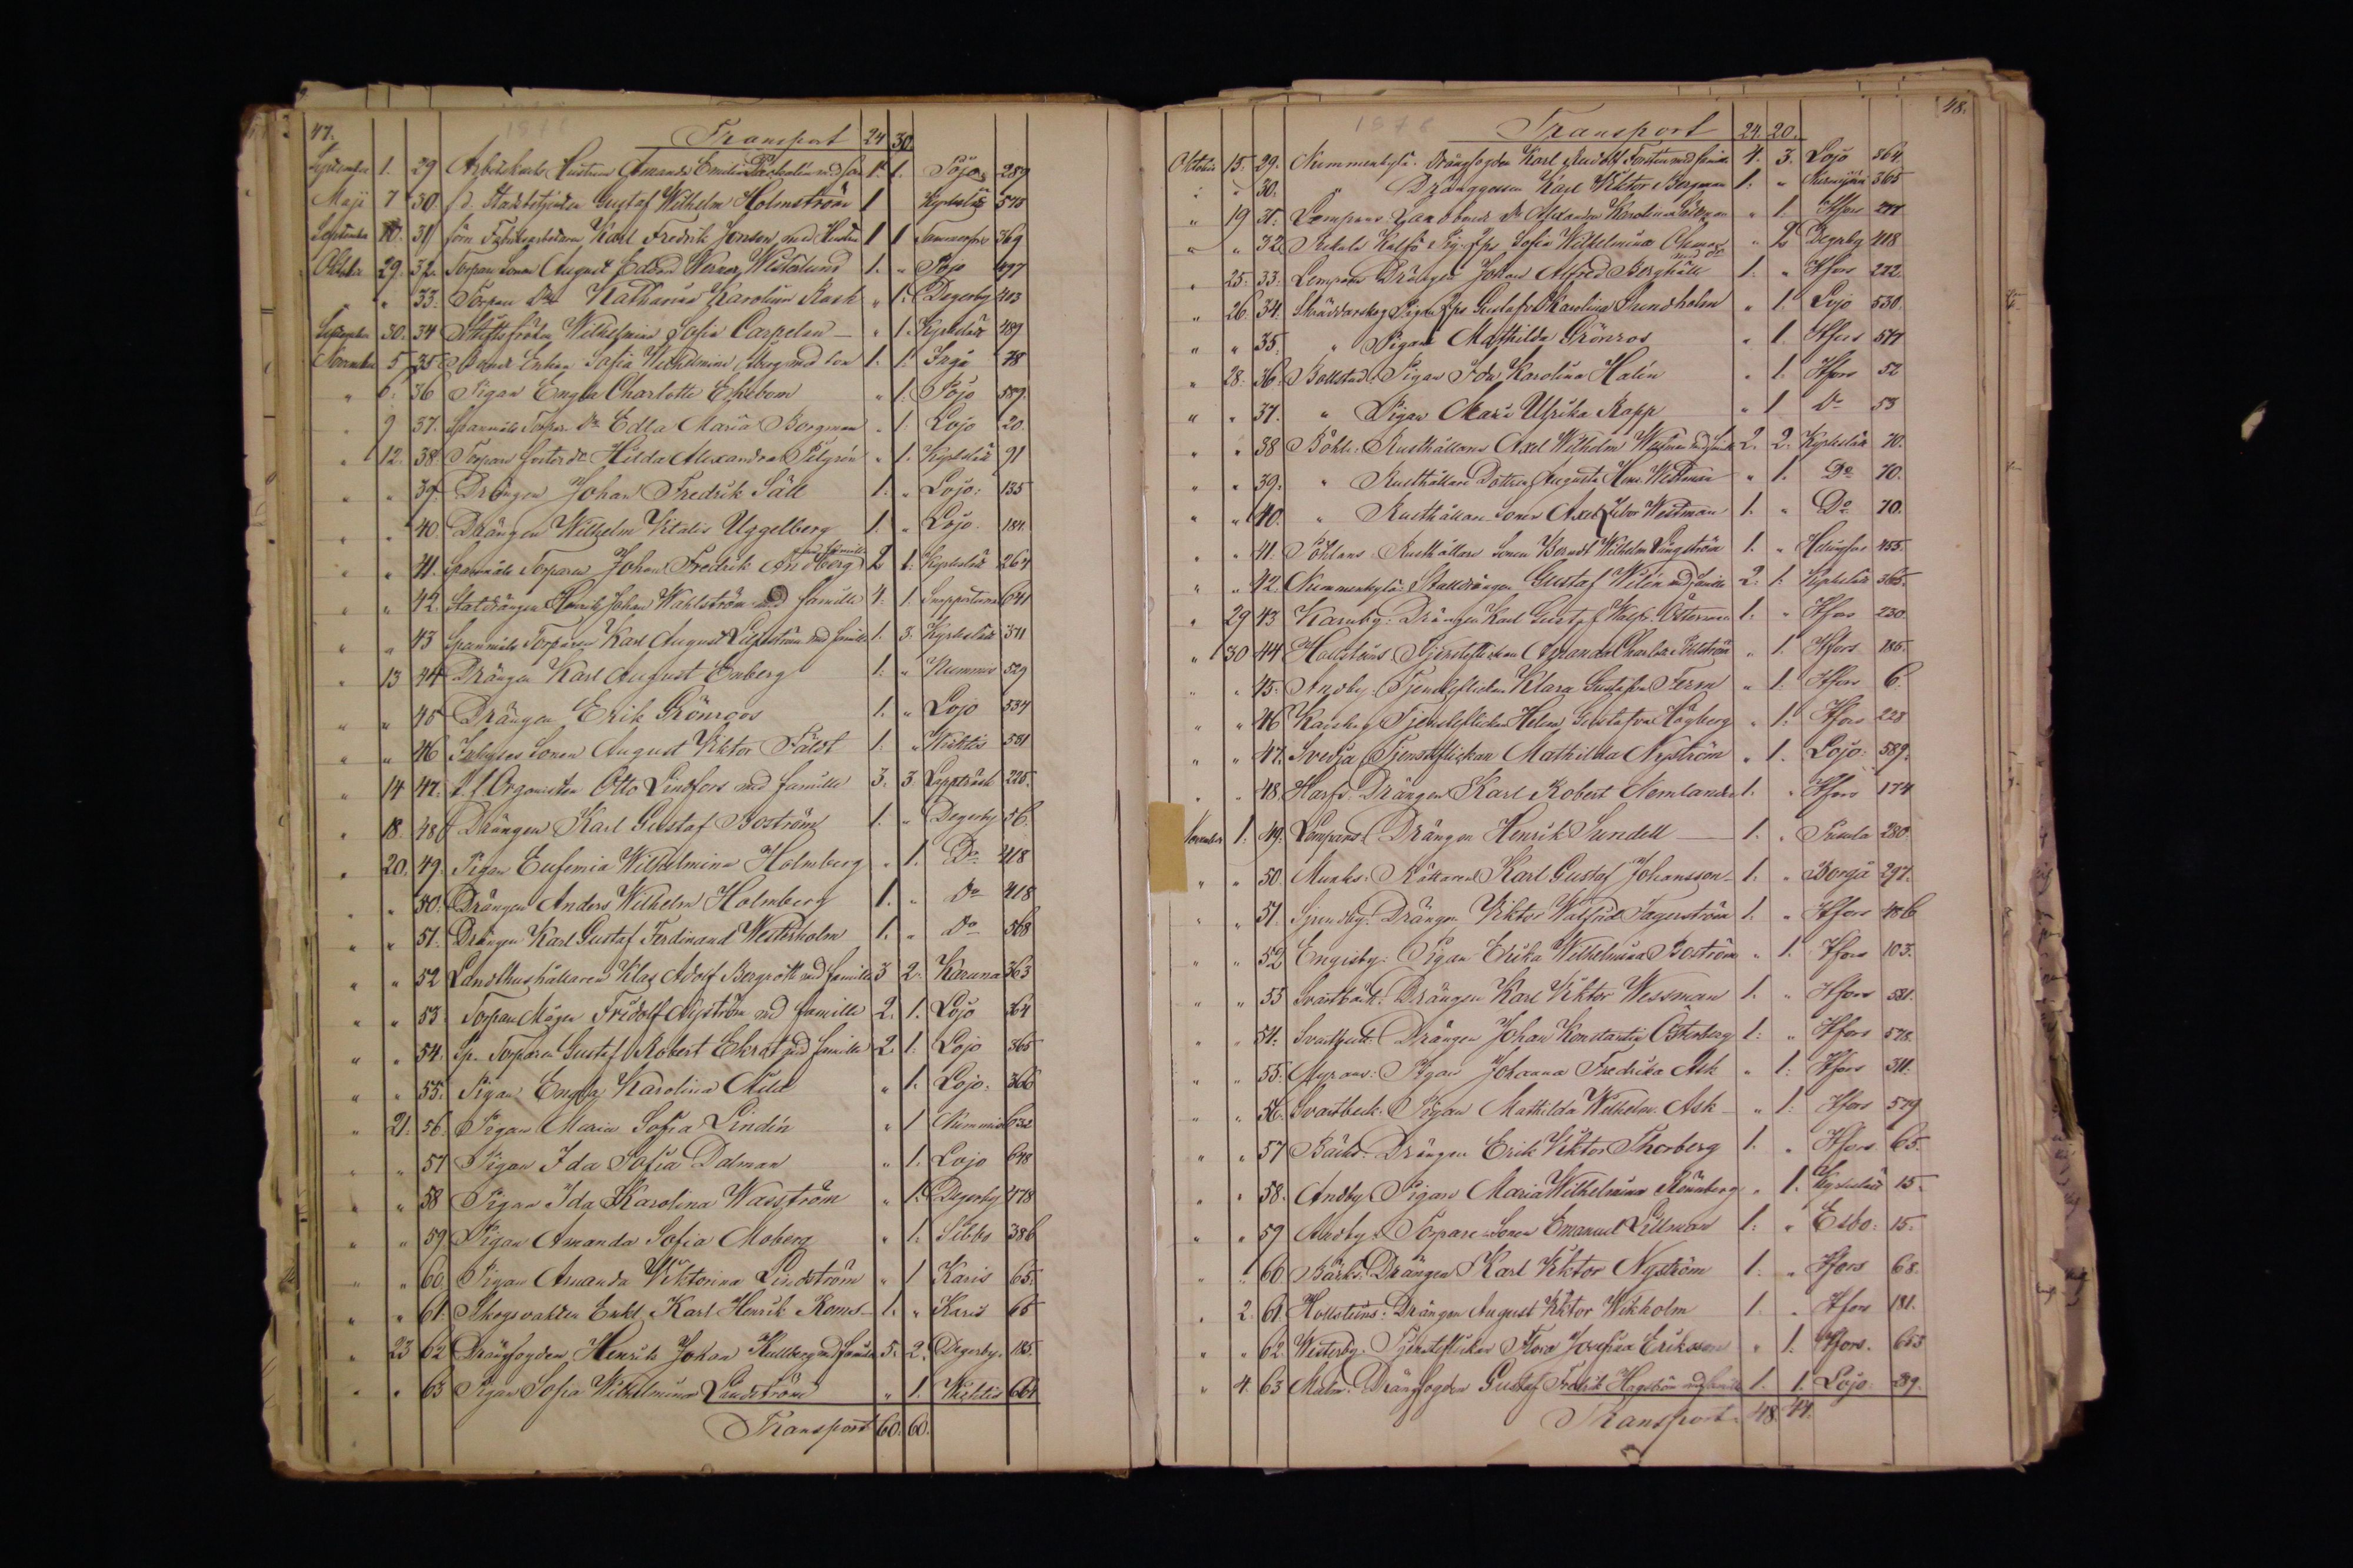 47.
1876
Transport 24 30.
September 1. 29 Arbetskarls Hustrun Amanda Emilia med son 1. 1. Pojo 289
Maji 7 30 f.d. Stadsbetjenten Gustaf Wilhelm Holmström 1 Kyrkslät 548
September 10. 31 förn Fabriksarbetaren Karl Fredrik Jonson med Hustru 1 1 Tammerfors 369
Oktober 29. 32. Torpare Sonen August Edvard Werner Westerlund 1. " Pojo 497
" " 33. Torpare Dr Katharina Karolina Rask " 1. Degerby 403
September 30. 34 Stiftsfröken Wilhelmina Sofia Carpelan " 1. Kyrkslät 489
November 5 35 Enkan Sofia Wilhelmina med son 1. 1. Ingå 78
" 6. 36 Pigan Engla Charlotte Ekebom " 1. Pojo 589.
" 9 37. Spanmåls Torpar. Dr Edla Maria Bergman " 1. Lojo 20.
" 12. 38. Torpare foster dr Hilda Alexandra Pilgrén " 1. Kyrkslät 91
" " 39. Drängen Johan Fredrik Säll 1. " Lojo: 135
" " 40. Drängen Wilhelm Vitalis Uggelberg 1. " Lojo. 184.
" " 41. Spanmåls Torparen Johan Fredrik Andberg med famille 2 1. Kyrkslät 264
" " 42. Statdrängen Henrik Johan Wahlström med famille 4. 1. 641
" " 43 Spanmåls Torparen Karl August Liljeström med famille 1. 3. Kyrkslät 311
" 13 44 Drängen Karl August Enberg 1. " Nummis 529
" " 45 Drängen Erik Grönroos 1. " Lojo 534
" " 46 Inhyses Sonen August Viktor Fält 1. " Wichtis 581
" 14 47. t.f. Organisten Otto Lindfors med famille 3. 3. Lappträsk 225.
" 18. 48 Drängen Karl Gustaf Boström 1. " Degerby 56.
" 20. 49. Pigan Eufemia Wilhelmina Holmberg " 1. Do 418
" " 50. Drängen Anders Wilhelm Holmberg 1. " Do 418
" " 51. Drängen Karl Gustaf Ferdinand Westerholm 1. " Do 568
" " 52 Landthushållaren Klas Adolf Bergroth med famille 3 2. Karuna 363
" " 53. Torpare Mågen Fridolf Nyström med famille 2. 1. Lojo 364
" " 54. Sp. Torparen Gustaf Robert Ekrot med famille 2. 1. Lojo 365
" " 55. Pigan Engla Karolina " 1. Lojo. 366
" 21. 56. Pigan Maria Sofia Lindén " 1 Nummis 632
" " 57 Pigan Ida Sofia Dalman " 1. Lojo 648
" " 58 Pigan Ida Karolina Wasström " 1. Degerby 478
" " 59 Pigan Amanda Sofia Moberg " 1. Sibbo 386
" " 60. Pigan Amanda Viktorina Lindström " 1 Karis 65.
" " 61. Skogsvakten Enkl. Karl Henrik 1. " Karis 65
" 23 62 Drängfogden Henrik Johan Kullberg med famille 5. 2. Degerby. 185.
" " 63 Pigan Sofia Wilhelmina Landström " 1. Wichtis 664
Transport 60. 60.
48.
1876
Transport 24. 20.
Oktober 15. 29. Nummenkylä. Drängfogden Karl Rudolf Forsten med famille 4. 3. Lojo 364.
" " 30. " Dränggossen Karl Viktor Bergman 1. " Nurmijärvi 365
" 19 31. Lempans Landbonde Dr Alexandra Karolina " 1. Hfors 277
" " 32. Kalfö Pig. Sofia Wilhelmina med dr " 2 Degerby 418
" 25. 33. Lempans Drängen Johan Alfred Berghäll 1. " Hfors 272.
" 26. 34. Skräddarskog Pigan Gustafva Karolina Sundholm " 1. Lojo 530.
" " 35. " Pigan Mathilda Grönros " 1. Hfors 544
" 28. 36. Bollstad. Pigan Ida Karolina Halin " 1. Hfors 52
" " 37. " Pigan Maria Ulrika Rapp " 1 Do 53
" " 38 Böhle. Rusthållaren Axel Wilhelm Westman med famille 2. 2. Kyrkslät 70.
" " 39. " Rusthållare Dottren Augusta Westman " 1. Do 70.
" " 40. " Rusthållare Sonen Axel Westman 1. " Do 70.
" " 41. Rusthållare Sonen Berndt Wilhelm Ljungström 1. " Helsingfors 455.
" " 42. Nummenkylä: Stalldrängen Gustaf Wilén med famille 2. 1. Kyrkslät 365.
" 29 43 Karuby: Drängen Karl Gustaf Walfr. Österman 1. " Hfors 230.
" 30 44 Hollstens Tjensteflickan Amanda Charlotta " 1. Hfors 185.
" " 45. Andby. Tjensteflickan Klara Gustafva Ferm " 1. Hfors 6.
" " 46 Tjensteflickan Helena Gustafva Högberg " 1. Hfors 228
" " 47. Svedja Tjensteflickan Mathilda Nyström " 1. Lojo. 589.
" " 48. Harfs. Drängen Karl Robert Nemlander 1. " Hfors 174
November 1. 49. Lempans Drängen Henrik Sundell 1. " 280.
" " 50. Munks. Rättaren Karl Gustaf Johansson 1. " Borgå 297.
" " 51. Sjundby. Drängen Viktor Walfrid Fagerström 1. " Hfors 486
" " 52 Engisby. Pigan Erika Wilhelmina Boström " 1. Hfors 103.
" " 53 Svartbäck. Drängen Karl Viktor Wessman 1. " Hfors 581.
" " 54. Svartbeck. Drängen Johan Konstantin Österberg 1. " Hfors 578.
" " 55. Myrans. Pigan Johanna Fredrika Ask " 1. Hfors 311.
" " 56. Svartbeck. Pigan Mathilda Wilhelm. Ask " 1. Hfors 579
" " 57 Bäcks. Drängen Erik Viktor Thorberg 1. " Hfors 65.
" " 58. Andby Pigan Maria Wilhelmina Rönnberg " 1. Kyrkslät 15.
" " 59 Andby. Torpare Sonen Emanuel Lillman 1. " Esbo. 15.
" " 60 Bäcks. Drängen Karl Viktor Nyström 1. " Hfors 68.
" 2. 61. Hollstens: Drängen August Viktor Wikholm 1. " Hfors 181.
" " 62. Westerby. Tjensteflickan Flora Josefina Eriksson " 1. Hfors. 653
" 4. 63 Malm. Drängfogden Gustaf Fredrik Hagström med famille 1. 1. Lojo. 289.
Transport 48. 44.